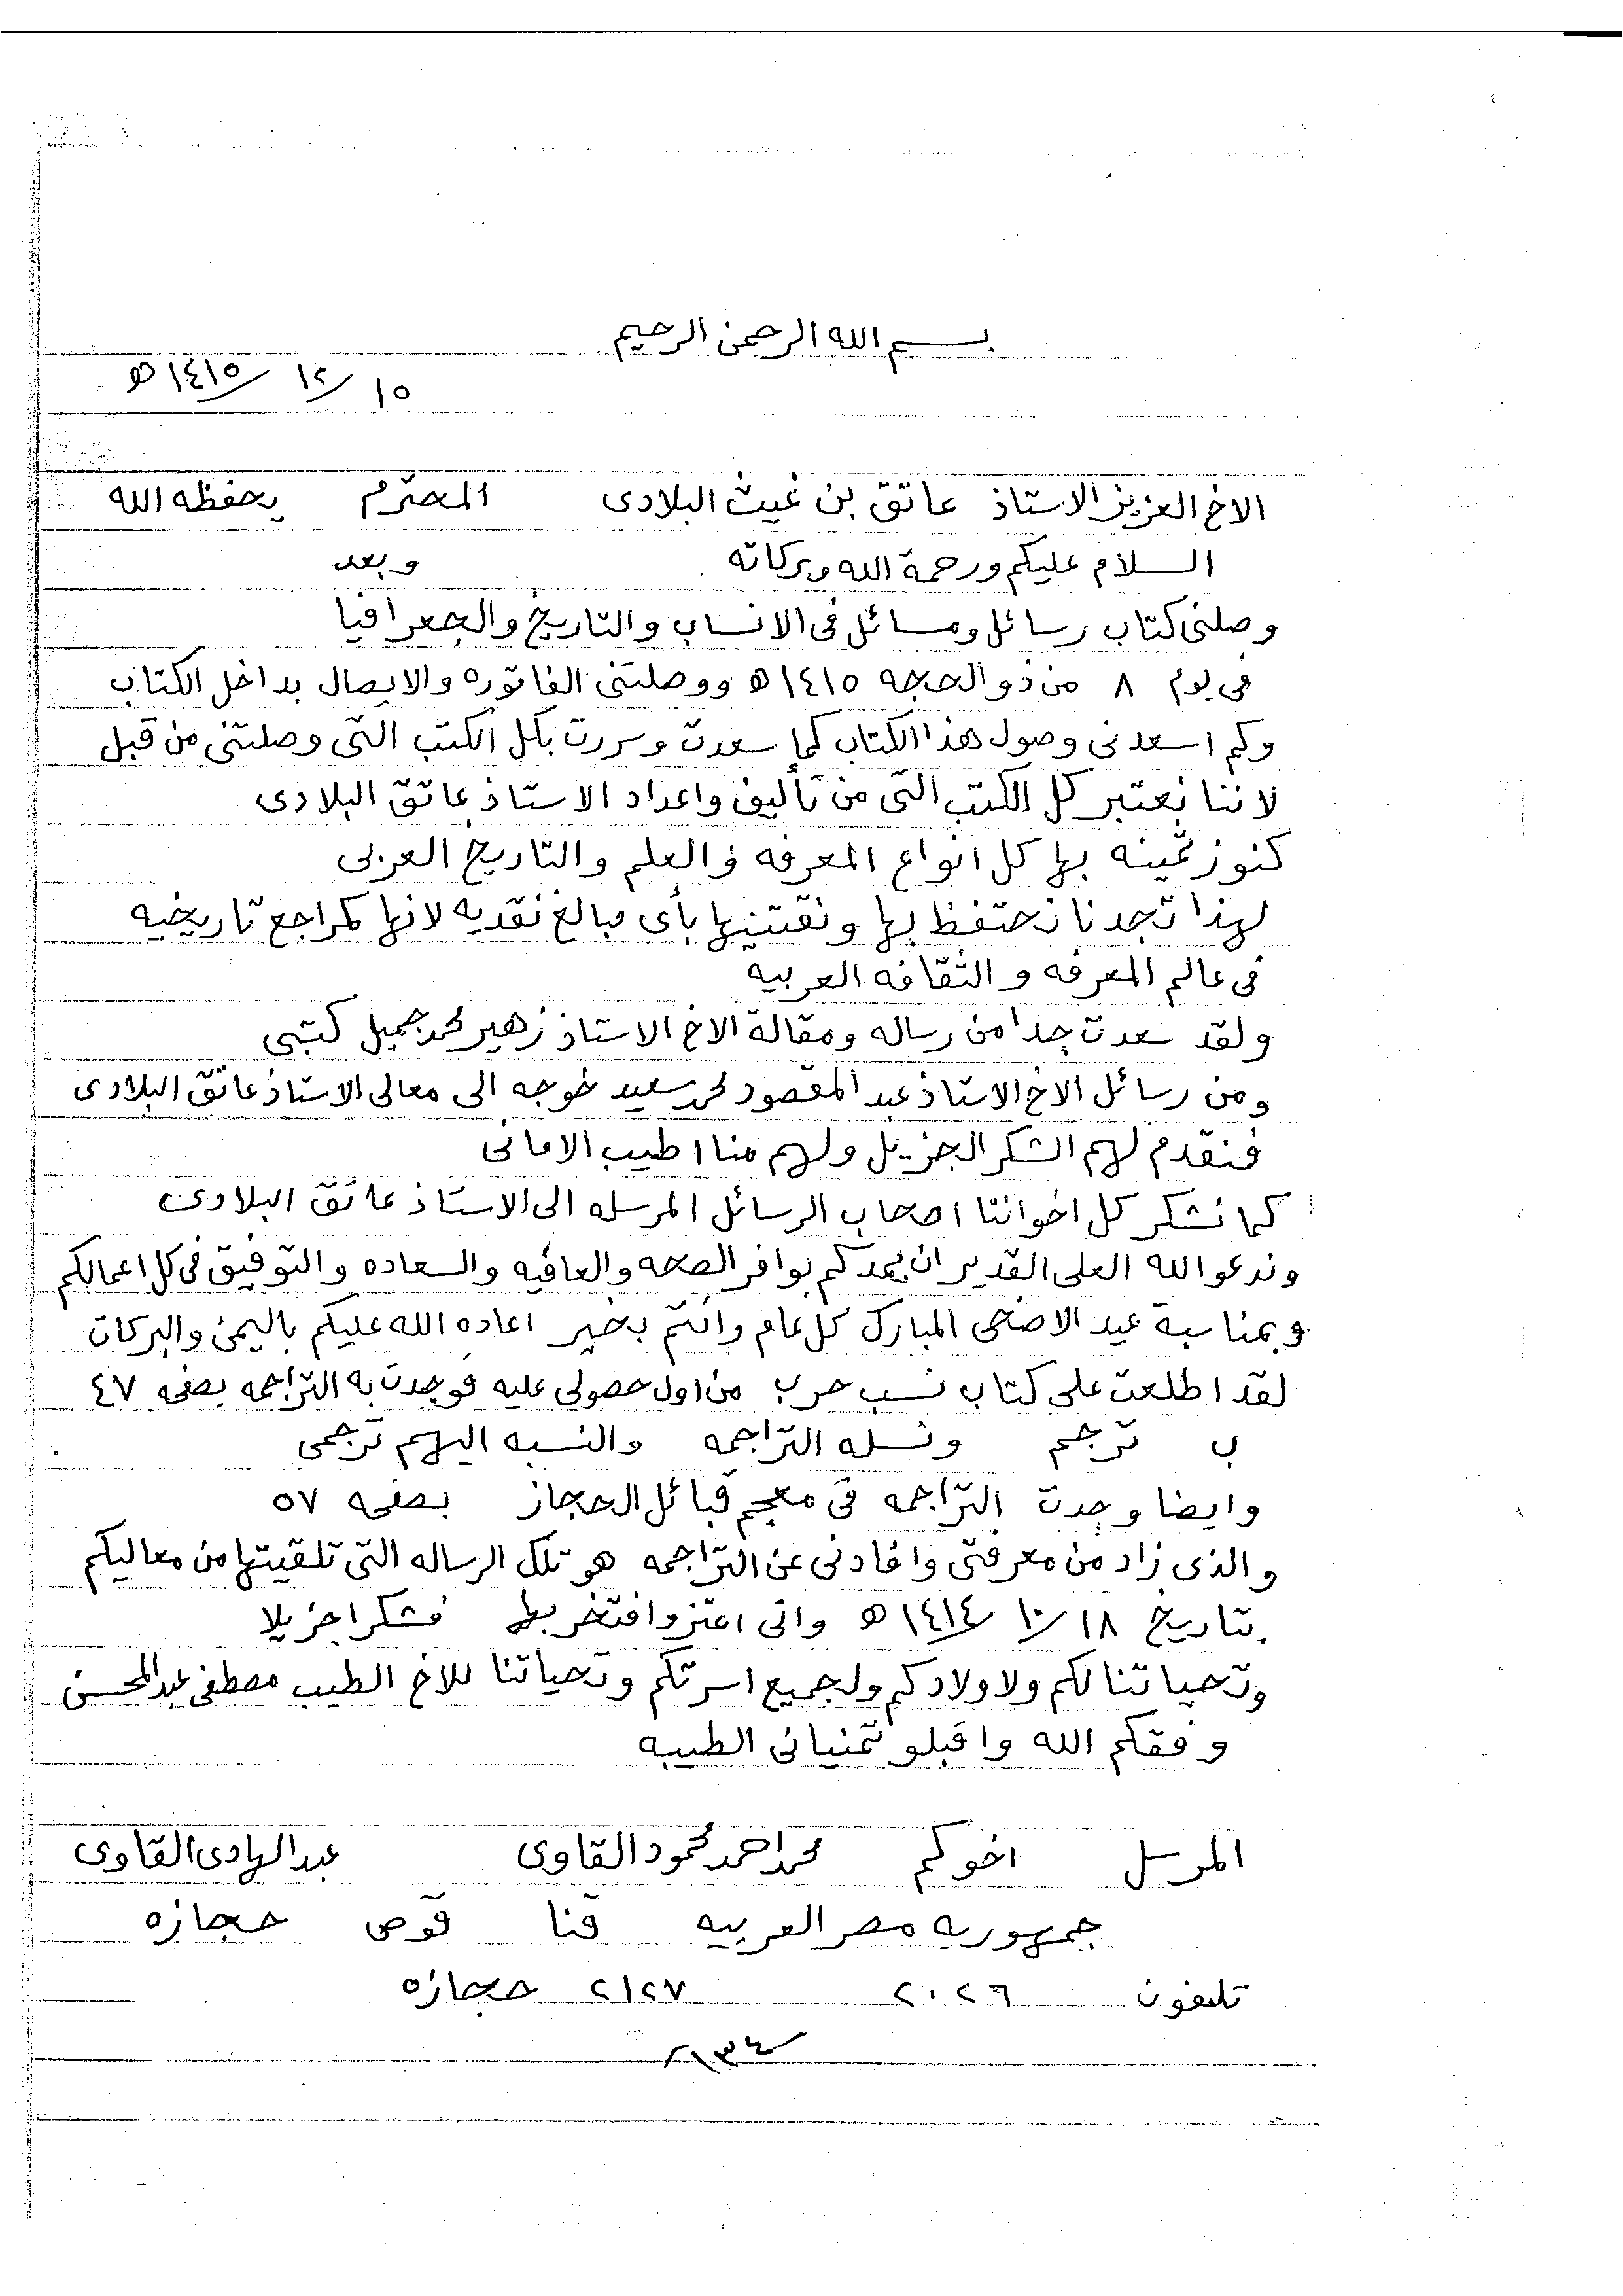 بسم الله الرحمن الرحيم
١٥/١٢/١٤١٥ ه
الاخ العزيز الاستاذ عاتق بن غيث البلادى المحترم يحفظه الله
السلام عليكم ورحمة الله وبركاته وبعد
وصلنى كتاب رسائل ومسائل فى الانساب والتاريخ والجعرافيا
فى يوم ٨ من ذو الحجه ١٤١٥ ه ووصلتنى الفاتوره والايصال بداخل الكتاب
وكم اسعدنى وصول هذا الكتاب كما سعدت وسررت بكل الكتب التى وصلتنى من قبل
لاننا نعتبر كل الكتب التى من تأليف واعداد الاستاذ عاتق البلادى
كنوز ثمينه بها كل انواع المعرفه والعلم والتاريخ العربى
لهذا تجدنا نحتفظ بها ونقتنيها بأى مبالغ نقديه لانها كمراجع تاريخيه
فى عالم المعرفه والثقافه العربيه
ولقد سعدت جدا من رساله ومقالة الاخ الاستاذ زهير محمد جميل كتبى
ومن رسائل الاخ الاستاذ عبد المقصود محمد سعيد خوجه الى معالى الاستاذ عاتق البلادى
فنقدم لهم الشكر الجزيل ولهم منا اطيب الامانى
كما نشكر كل اخواننا اصحاب الرسائل المرسله الى الاستاذ عاتق البلادى
وندعو الله العلى القدير ان يمدكم بوافر الصحه والعافيه والسعاده والتوفيق فى كل اعمالكم
وبمناسبة عيد الاضحى المبارك كل عام وانتم بخير اعاده الله عليكم باليمن والبركات
لقد اطلعت على كتاب نسب حرب من اول حصولى عليه فوجدت به التراجمه بصفحه ٤٧
ب ترجم ونسله التراجمه والنسبه اليهم ترجمى
وايضا وجدت التراجمه فى معجم قبائل الحجاز بصفحه ٥٧
والذى زاد من معرفتى وافادنى عن التراجمه هو تلك الرساله التى تلقيتها من معاليكم
بتاريخ ١٨/١٠/١٤١٤ ه وانى اعتز وافتخر بها فشكرا جزيلا
وتحياتنا لكم ولاولادكم ولجميع اسرتكم وتحياتنا للاخ الطيب مصطفى عبدالمحسن
وفقكم الله واقبلو تمنياتى الطيبه
المرسل اخوكم محمد احمد محمود القاوى عبدالهادى القاوى
جمهوريه مصر العربيه قنا قوص حجازه
تليفون ٢٠٢٦ ٢١٢٧ حجازه